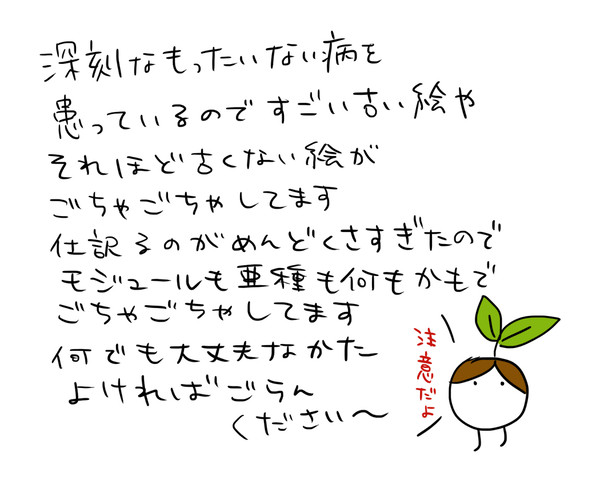 深刻なもったいない病を
患っているのですごい古い絵や
それほど古くない絵が
ごちゃごちゃしてます
仕訳るのがめんどくさすぎたので
モジュールも亜種も何もかもで
ごちゃごちゃしてます
何でも大丈夫なかた
よければごらん
ください〜
注意だよ